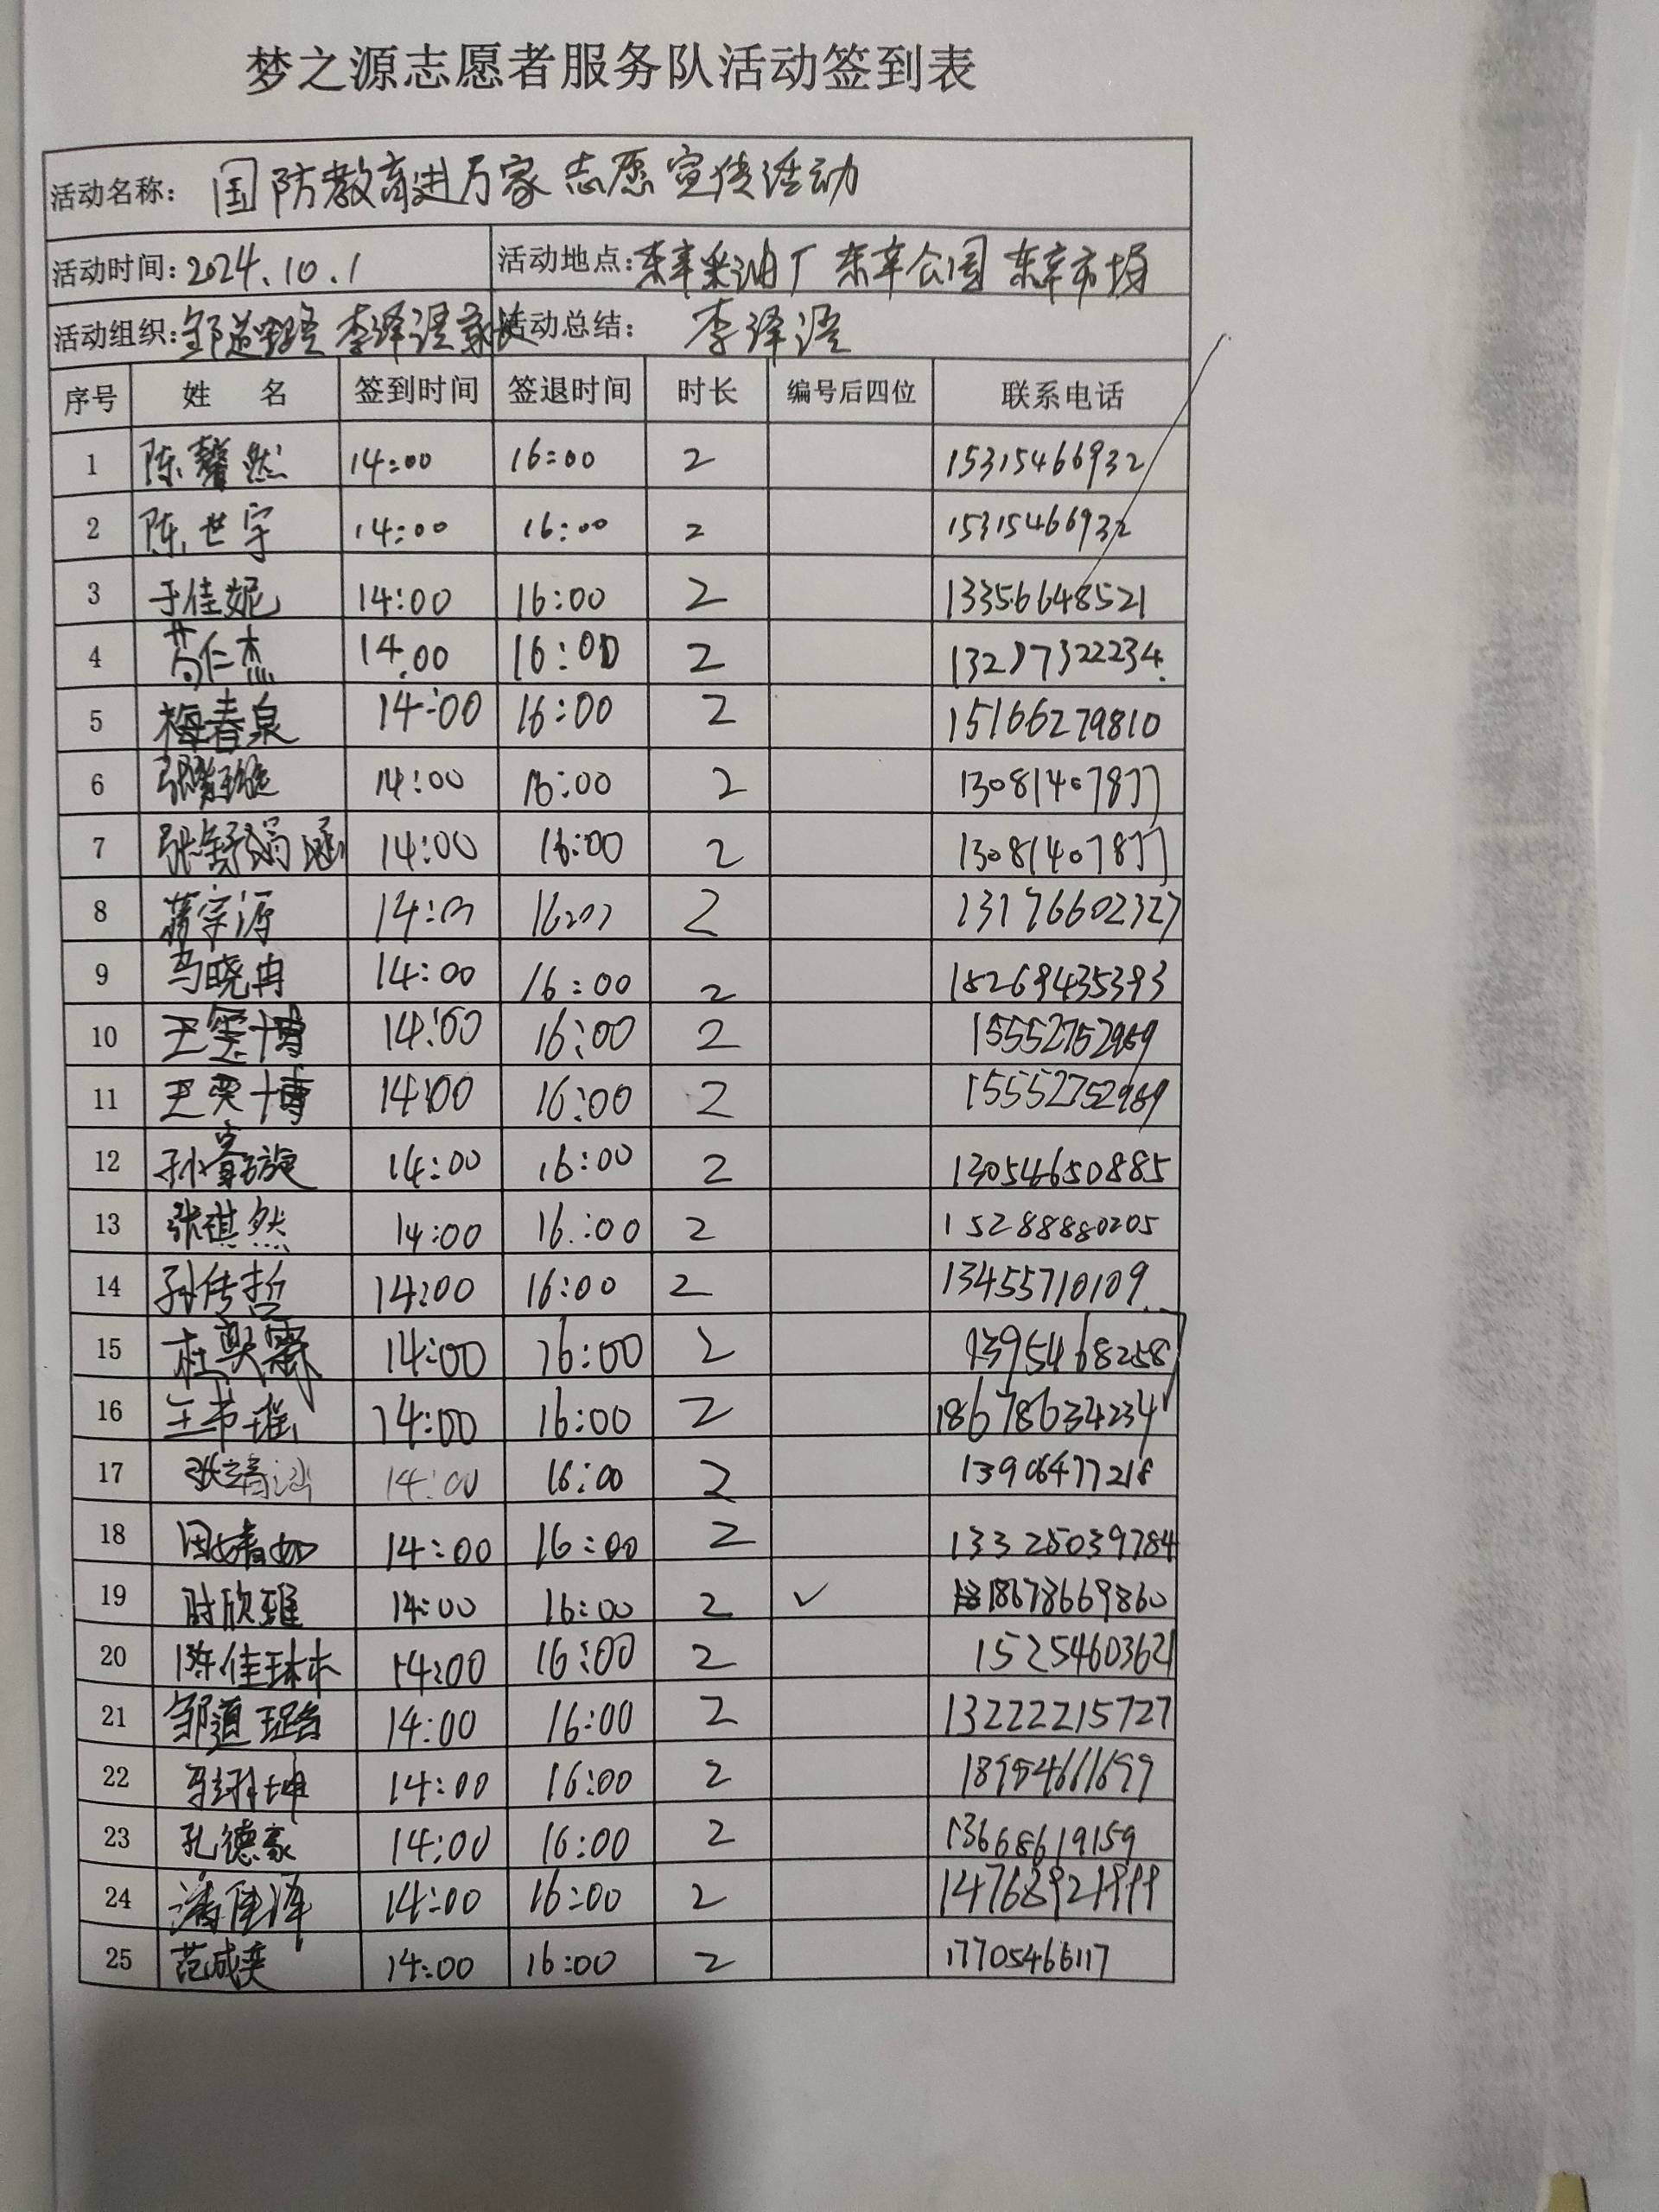 梦之源志愿者服务队活动签到表
活动名称: 国防教育进万家志愿宣传活动
活动时间: 2024.10.1 活动地点: 东辛采油厂 东辛公园 东辛市场
活动组织: 邹道 李泽浯家长 活动总结: 李泽浯
序号 姓 名 签到时间 签退时间 时长 编号后四位 联系电话
1 陈馨然 14:00 16:00 2 15315466932
2 陈世宇 14:00 16:00 2 15315466932
3 于佳妮 14:00 16:00 2 13356648521
4 苟仁杰 14:00 16:00 2
5 梅春泉 14:00 16:00 2 15166279810
6 14:00 16:00 2
7 14:00 16:00 2
8 蒋宗源 14:00 16:00 2 13176602327
9 马晓冉 14:00 16:00 2 18269435393
10 14:00 16:00 2 15552752989
11 王奕博 14:00 16:00 2 15552752989
12 14:00 16:00 2 13054650885
13 张祺然 14:00 16:00 2 15288880205
14 孙传哲 14:00 16:00 2 13455710109
15 14:00 16:00 2 1395468258
16 王书瑶 14:00 16:00 2 18678634234
17 14:00 16:00 2 13906477218
18 14:00 16:00 2 133280039784
19 时欣雅 14:00 16:00 2 ✓ 18678669860
20 陈佳琳 14:00 16:00 2 15254603621
21 邹道 14:00 16:00 2 13222215727
22 14:00 16:00 2 18954661699
23 孔德豪 14:00 16:00 2 13668619159
24 潘佳泽 14:00 16:00 2
25 范成奕 14:00 16:00 2 17705466117